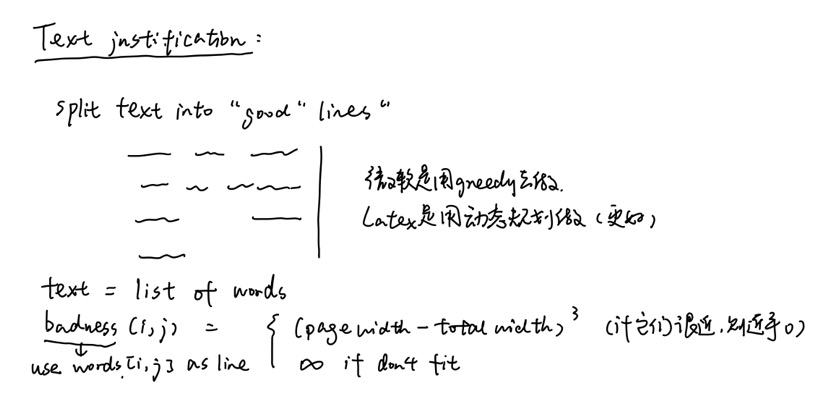 Text justification:
split text into "good" lines"
微软是用greedy去做.
Latex是用动态规划做(更好)
text = list of words
badness (i,j) = { (page width - total width)³ (if它们很近,则近乎0)
use words [i,j] as line ∞ if don't fit